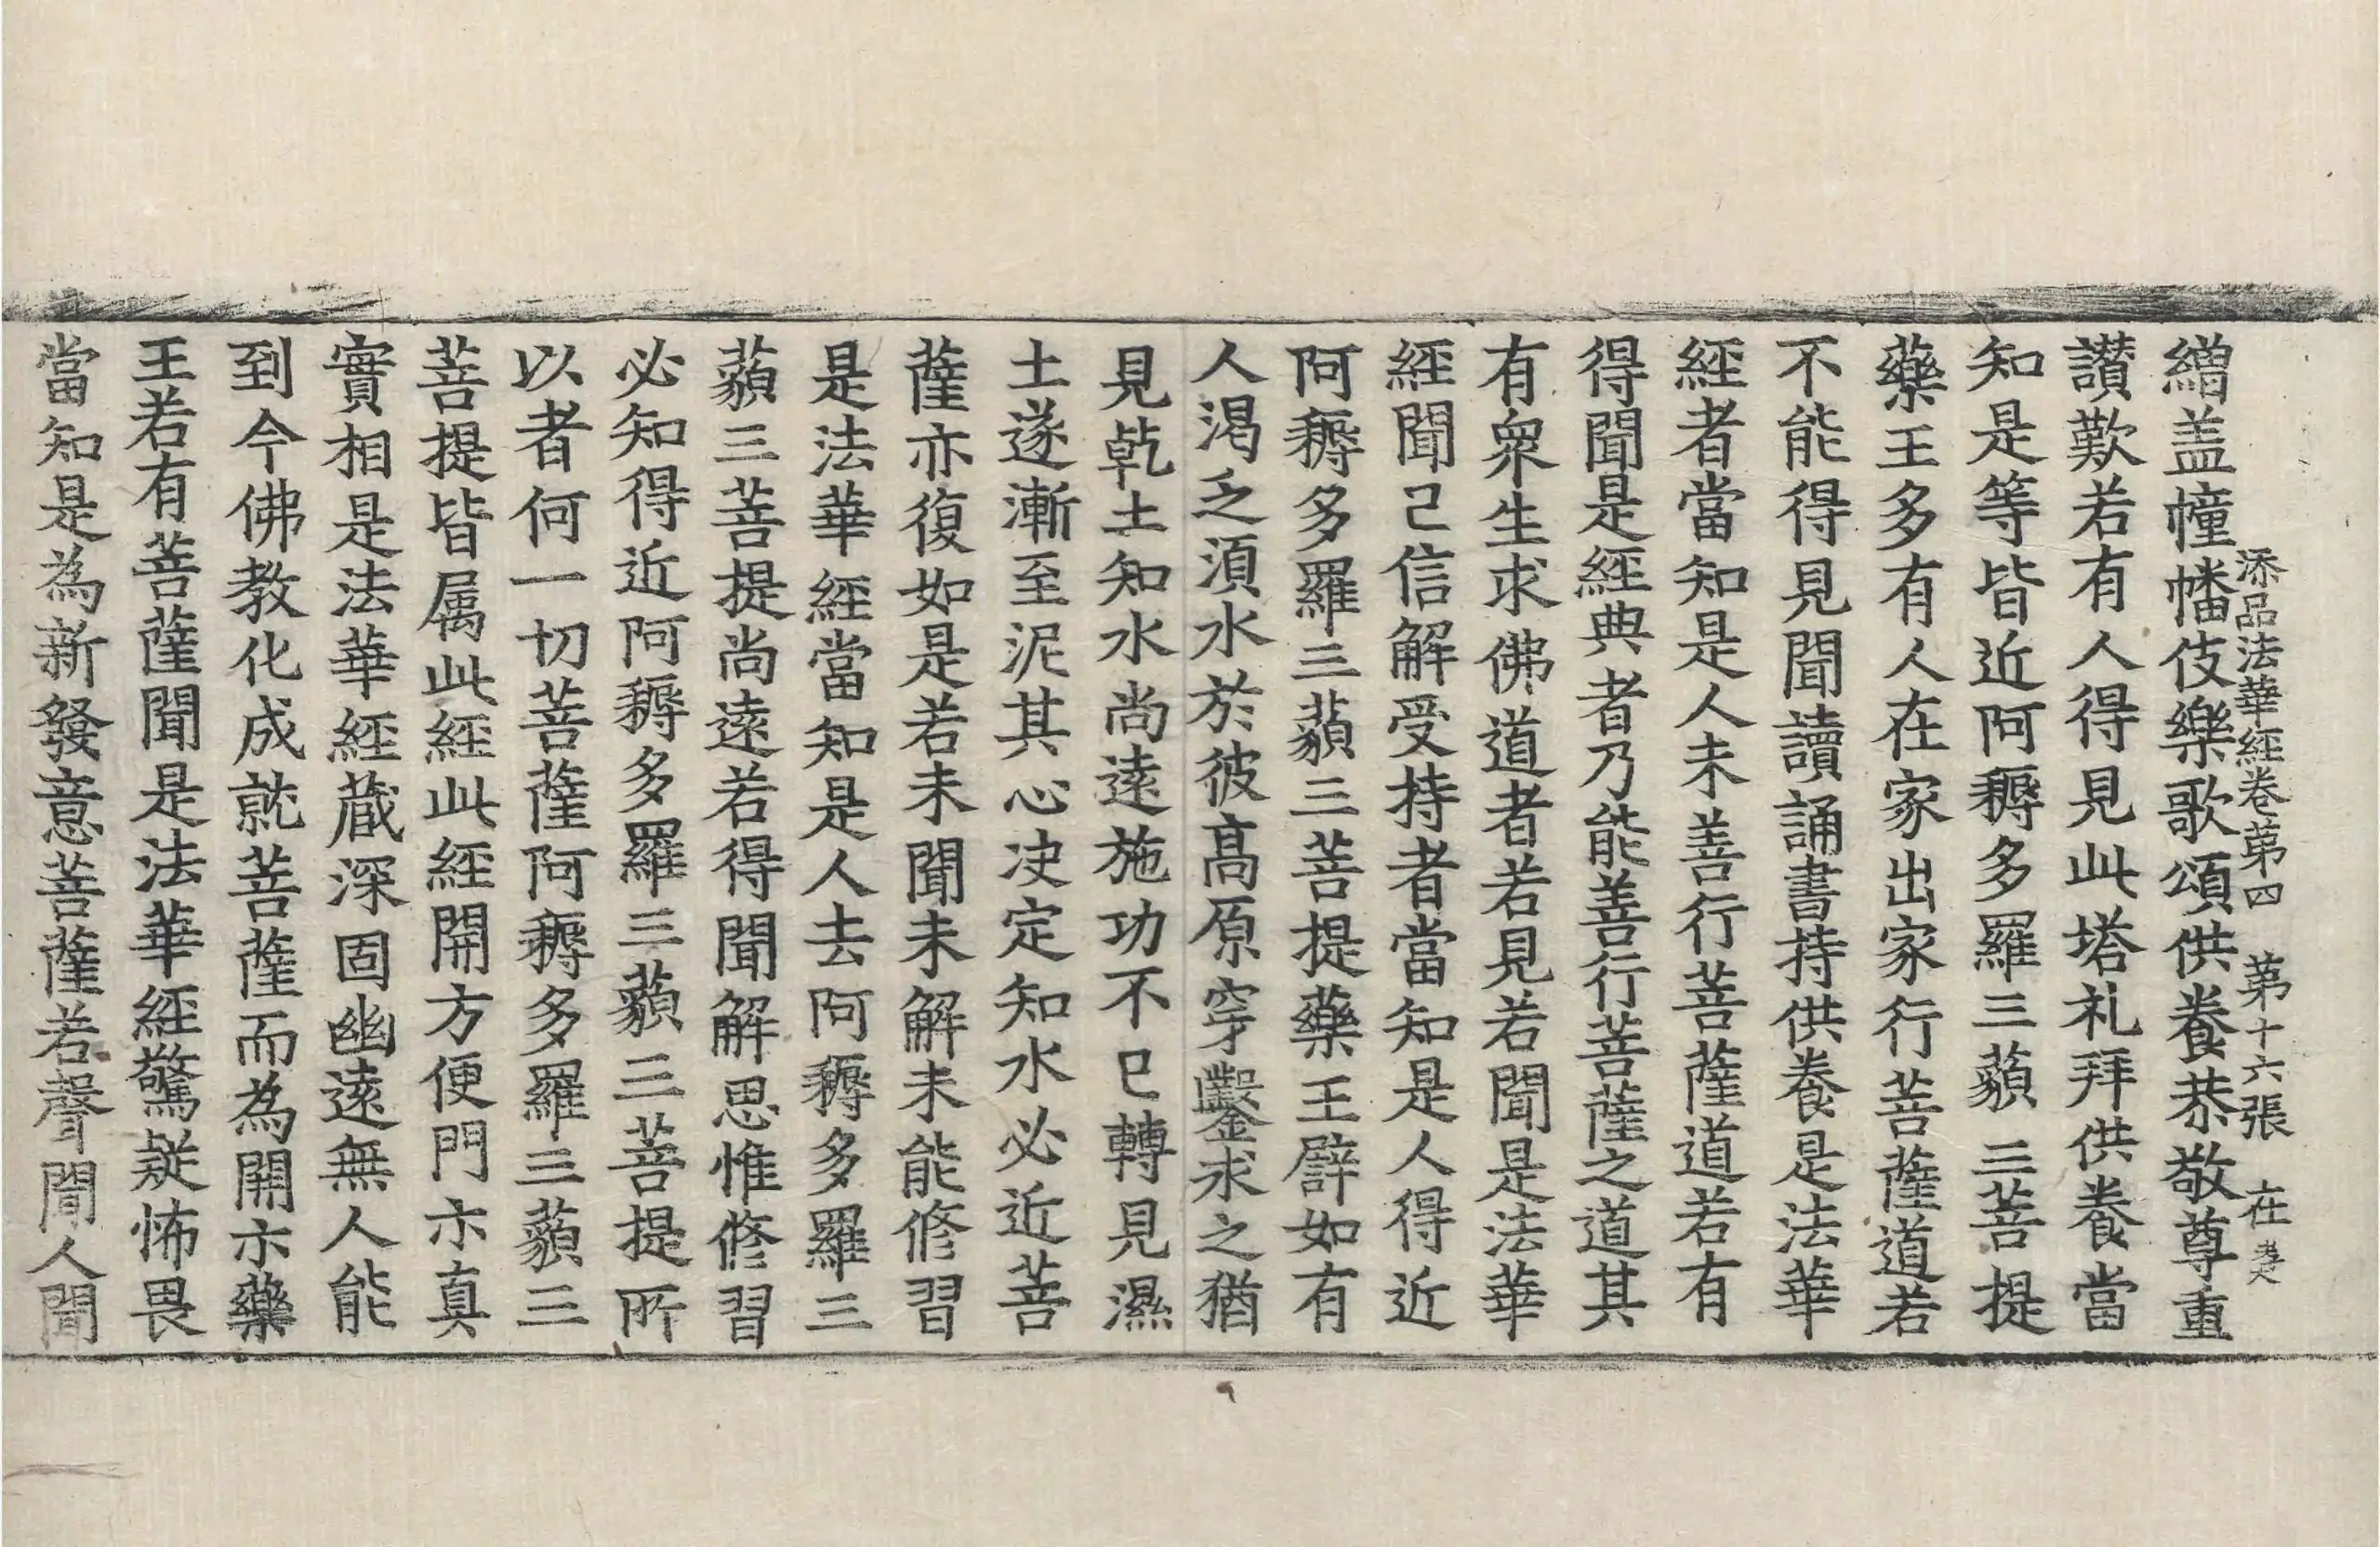 添品法華經卷第四 第十六張 在
繒盖幢幡伎樂歌頌供養恭敬尊重
讃歎若有人得見此塔礼拜供養當
知是等皆近阿耨多羅三藐三菩提
藥王多有人在家出家行菩薩道若
不能得見聞讀誦書持供養是法華
經者當知是人未善行菩薩道若有
得聞是經典者乃能善行菩薩之道其
有衆生求佛道者若見若聞是法華
經聞已信解受持者當知是人得近
阿耨多羅三藐三菩提藥王譬如有
人渴乏須水於彼高原穿鑿求之猶
見乾土知水尚遠施功不已轉見濕
土遂漸至泥其心决定知水必近菩
薩亦復如是若未聞未解未能修習
是法華經當知是人去阿耨多羅三
藐三菩提尚遠若得聞解思惟修習
必知得近阿耨多羅三藐三菩提所
以者何一切菩薩阿耨多羅三藐三
菩提皆属此經此經開方便門示真
實相是法華經蔵深固幽遠無人能
到今佛教化成就菩薩而為開示藥
王若有菩薩聞是法華經驚疑怖畏
當知是為新發意菩薩若聲聞人聞